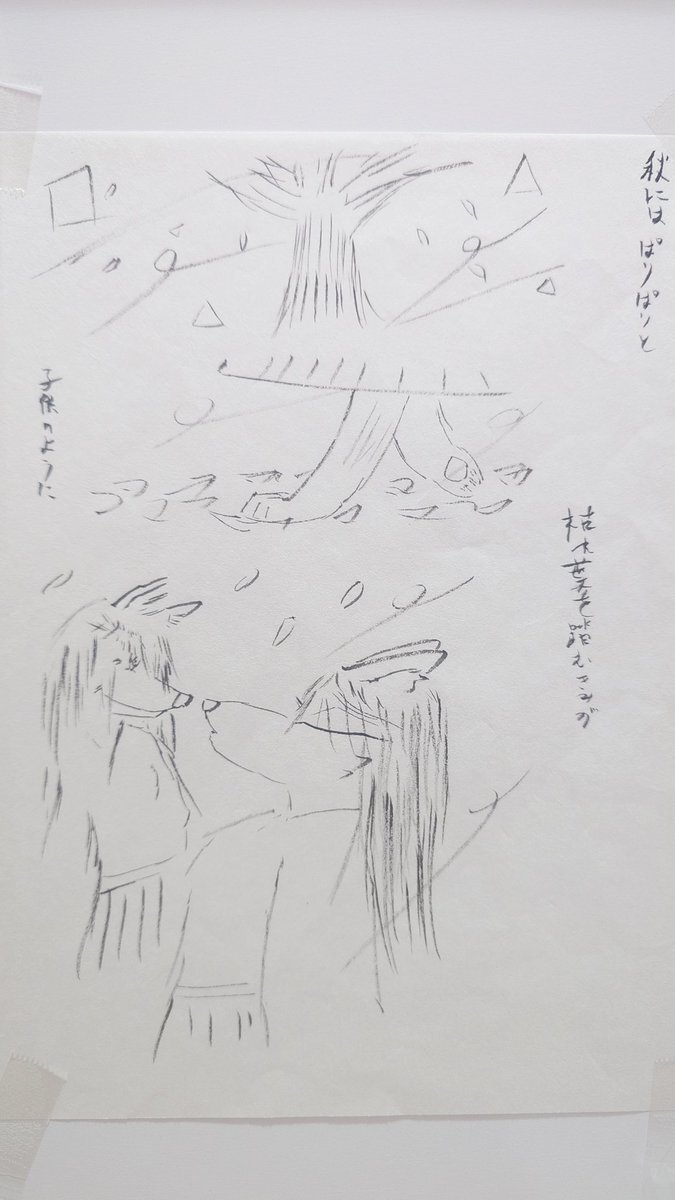 秋には ぱりぱりと
枯れ葉を踏むきみが
子供のように